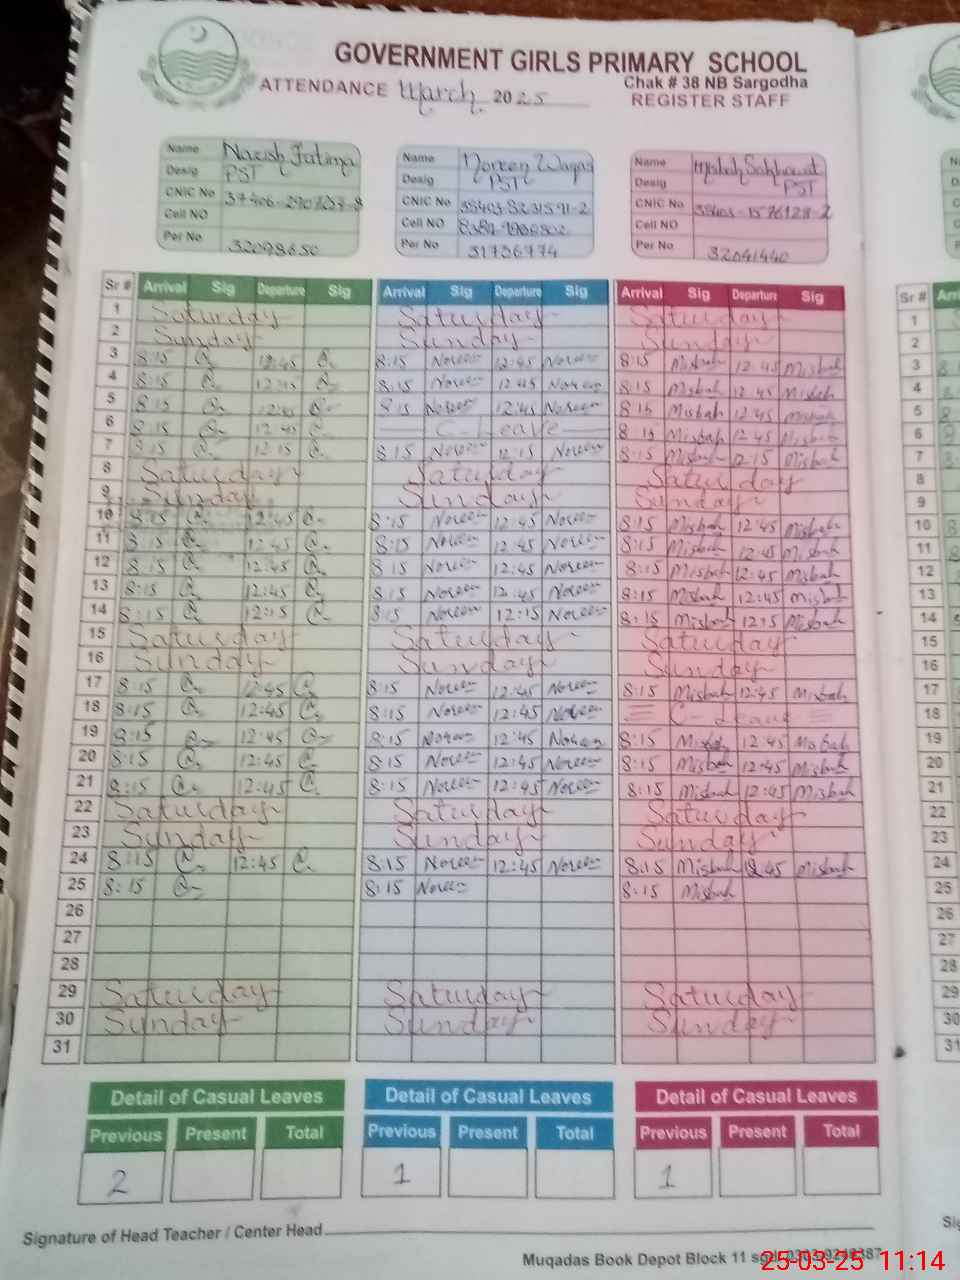 GOVERNMENT GIRLS PRIMARY SCHOOL
Chak # 38 NB Sargodha
ATTENDANCE March 2025 REGISTER STAFF
Name Nazish Fatima Name Noreen Waqas Name Misbah Sakhawat
Desig PST Desig PST Desig PST
CNIC No CNIC No CNIC No
Cell NO Cell NO Cell NO
Per No 32098650 Per No 31736774 Per No 32041440
Sr # Arrival Sig Departure Sig Arrival Sig Departure Sig Arrival Sig Departure Sig Sr #
1 Saturday Saturday Saturday 1
2 Sunday Sunday Sunday 2
3 8:15 12:45 8:15 Noreen 12:45 Noreen 8:15 Misbah 12:45 Misbah 3
4 8:15 12:45 8:15 Noreen 12:45 Noreen 8:15 Misbah 12:45 Misbah 4
5 8:15 12:45 8:15 Noreen 12:45 Noreen 8:15 Misbah 12:45 Misbah 5
6 8:15 12:45 C-Leave 8:15 Misbah 12:45 Misbah 6
7 8:15 12:15 8:15 Noreen 12:15 Noreen 8:15 Misbah 12:15 Misbah 7
8 Saturday Saturday Saturday 8
9 Sunday Sunday Sunday 9
10 8:15 12:45 8:15 Noreen 12:45 Noreen 8:15 Misbah 12:45 Misbah 10
11 8:15 12:45 8:15 Noreen 12:45 Noreen 8:15 Misbah 12:45 Misbah 11
12 8:15 12:45 8:15 Noreen 12:45 Noreen 8:15 Misbah 12:45 Misbah 12
13 8:15 12:45 8:15 Noreen 12:45 Noreen 8:15 Misbah 12:45 Misbah 13
14 8:15 12:15 8:15 Noreen 12:15 Noreen 8:15 Misbah 12:15 Misbah 14
15 Saturday Saturday Saturday 15
16 Sunday Sunday Sunday 16
17 8:15 12:45 8:15 Noreen 12:45 Noreen 8:15 Misbah 12:45 Misbah 17
18 8:15 12:45 8:15 Noreen 12:45 Noreen C-Leave 18
19 8:15 12:45 8:15 Noreen 12:45 Noreen 8:15 Misbah 12:45 Misbah 19
20 8:15 12:45 8:15 Noreen 12:45 Noreen 8:15 Misbah 12:45 Misbah 20
21 8:15 12:45 8:15 Noreen 12:45 Noreen 8:15 Misbah 12:45 Misbah 21
22 Saturday Saturday Saturday 22
23 Sunday Sunday Sunday 23
24 8:15 12:45 8:15 Noreen 12:45 Noreen 8:15 Misbah 12:45 Misbah 24
25 8:15 8:15 Noreen 8:15 Misbah 25
26 26
27 27
28 28
29 Saturday Saturday Saturday 29
30 Sunday Sunday Sunday 30
31 31
Detail of Casual Leaves Detail of Casual Leaves Detail of Casual Leaves
Previous Present Total Previous Present Total Previous Present Total
2 1 1
Signature of Head Teacher / Center Head
Muqadas Book Depot Block 11
25-03-25 11:14